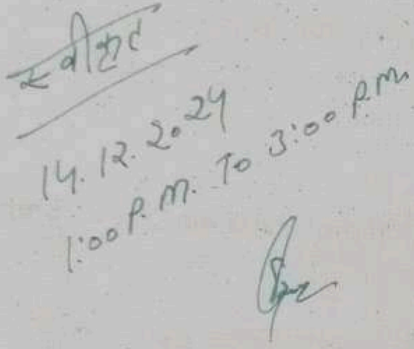 स्वीकृत
14.12.2024
1:00 P.M. To 3:00 P.M.